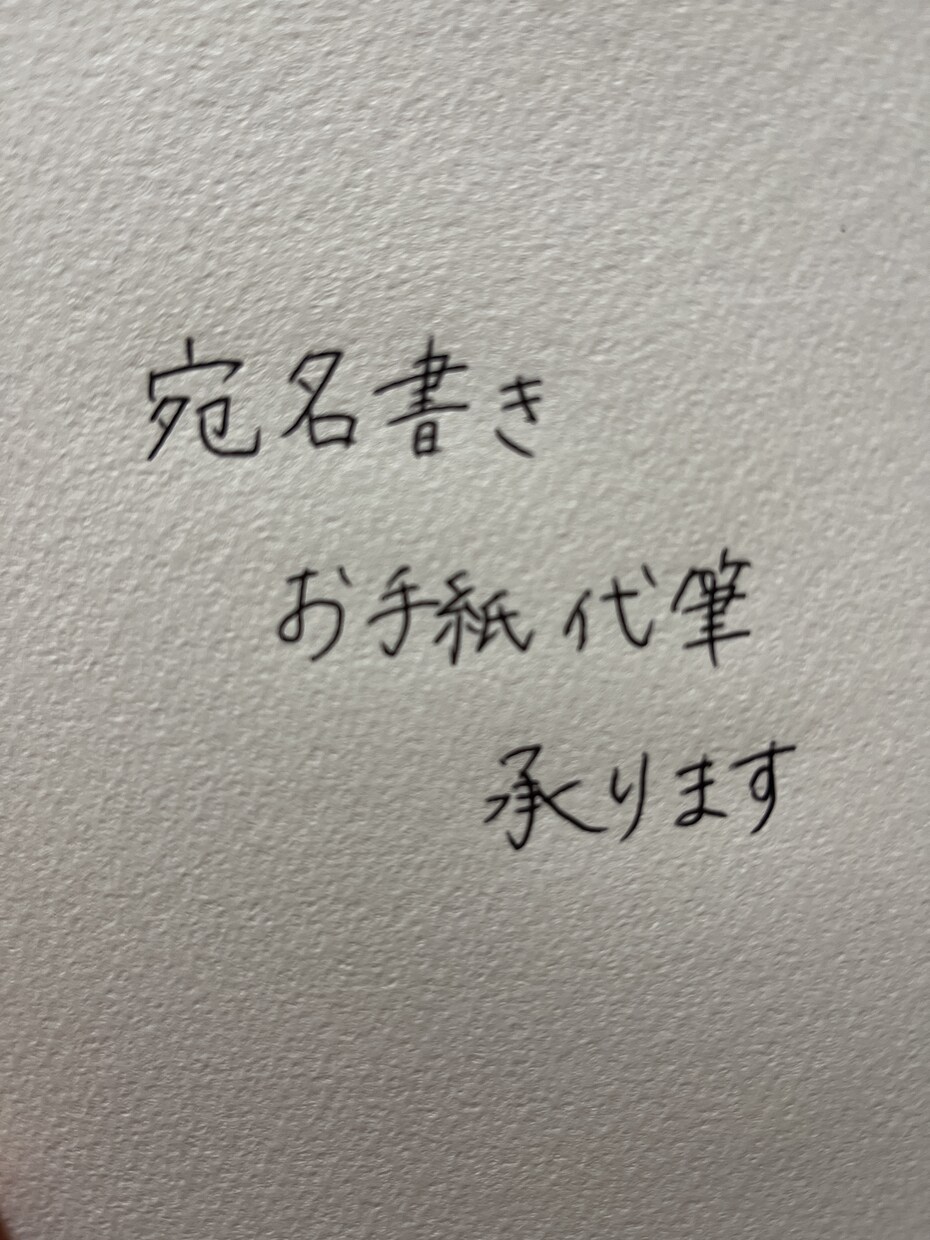 宛名書き
お手紙代筆
承ります